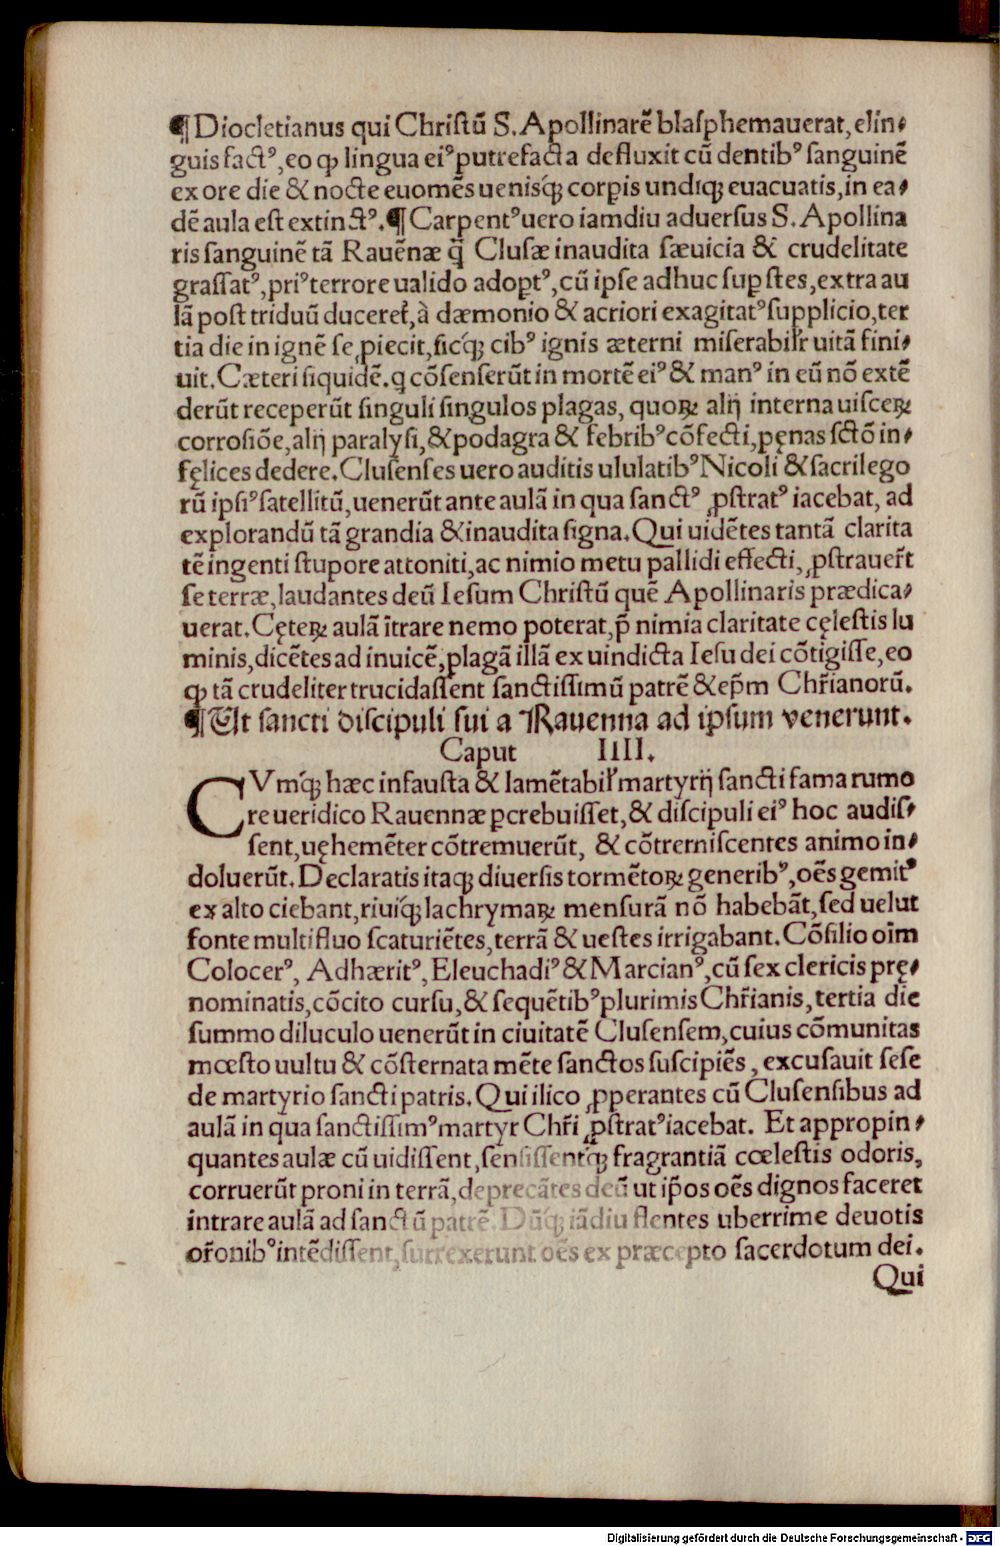 ¶Diocletianus qui Christū S. Apollinarē blasphemauerat, elin⸗
guis factꝰ, eo ꝙ lingua eiꝰ putrefacta defluxit cū dentibꝰ sanguinē
ex ore die & nocte euomēs uenisq́ꝫ corꝑis undiqꝫ euacuatis, in ea⸗
dē aula est extinctꝰ. ¶Carpentꝰ uero iamdiu aduersus S. Apollina
ris sanguinē tā Rauēnæ q̄ Clusæ inaudita sæuicia & crudelitate
grassatꝰ, priꝰ terrore ualido adoptꝰ, cū ipse adhuc suꝑstes, extra au
lā post triduū duceret᷑, à dæmonio & acriori exagitatꝰ supplicio, ter
tia die in ignē se ꝓiecit, sicq́ꝫ cibꝰ ignis æterni miserabilr̄ uitā fini⸗
uit. Cæteri siquidē. q cōsenserūt in mortē eiꝰ & manꝰ in eū nō extē
derūt receperūt singuli singulos plagas, quoꝝ alij interna uisceꝝ
corrosiōe, alij paralysi, & podagra & febribꝰ cōfecti, pęnas sctō in⸗
fęlices dedere. Clusenses uero auditis ululatibꝰ Nicoli & sacrilego
rū ipsiꝰ satellitū, uenerūt ante aulā in qua sanctꝰ ꝓstratꝰ iacebat, ad
explorandū tā grandia & inaudita signa. Qui uidētes tantā clarita
tē ingenti stupore attoniti, ac nimio metu pallidi effecti, ꝓstrauer̄t
se terræ, laudantes deū Iesum Christū quē Apollinaris prædica⸗
uerat. Cęteꝝ aulā ītrare nemo poterat, p̄ nimia claritate cęlestis lu
minis, dicētes ad inuicē, plagā illā ex uindicta Iesu dei cōtigisse, eo
ꝙ tā crudeliter trucidassent sanctissimū patrē & ep̄m Chr̄ianorū.
¶Ut sancti discipuli sui a Rauenna ad ipsum venerunt.
Caput IIII.
CVmq́ꝫ hæc infausta & lamētabilr̄ martyrij sancti fama rumo
re ueridico Rauennæ ꝑcrebuisset, & discipuli eiꝰ hoc audis⸗
sent, uęhemēter cōtremuerūt, & cōtremiscentes animo in⸗
doluerūt. Declaratis itaqꝫ diuersis tormētoꝝ generibꝰ, oēs gemitꝰ
ex alto ciebant, riuiq́ꝫ lachrymaꝝ mensurā nō habebāt, sed uelut
fonte multifluo scaturiētes, terrā & uestes irrigabant. Cōsilio oīm
Colocerꝰ, Adhæritꝰ, Eleuchadiꝰ & Marcianꝰ, cū sex clericis prę⸗
nominatis, cōcito cursu, & sequētibꝰ plurimis Chr̄ianis, tertia die
summo diluculo uenerūt in ciuitatē Clusensem, cuius cōmunitas
mœsto uultu & cōsternata mēte sanctos suscipiēs, excusauit sese
de martyrio sancti patris. Qui ilico ꝓperantes cū Clusensibus ad
aulā in qua sanctissimꝰ martyr Chr̄i ꝓstratꝰ iacebat. Et appropin⸗
quantes aulæ cū uidissent, sensissentq́ꝫ fragrantiā cœlestis odoris,
corruerūt proni in terrā, deprecātes deū ut ip̄os oēs dignos faceret
intrare aulā ad sanctū patrē. Dūq́ꝫ iādiu flentes uberrime deuotis
or̄onibꝰ intēdissent, surrexerunt oēs ex præcepto sacerdotum dei.
Qui
Digitalisierung gefördert durch die Deutsche Forschungsgemeinschaft - DFG